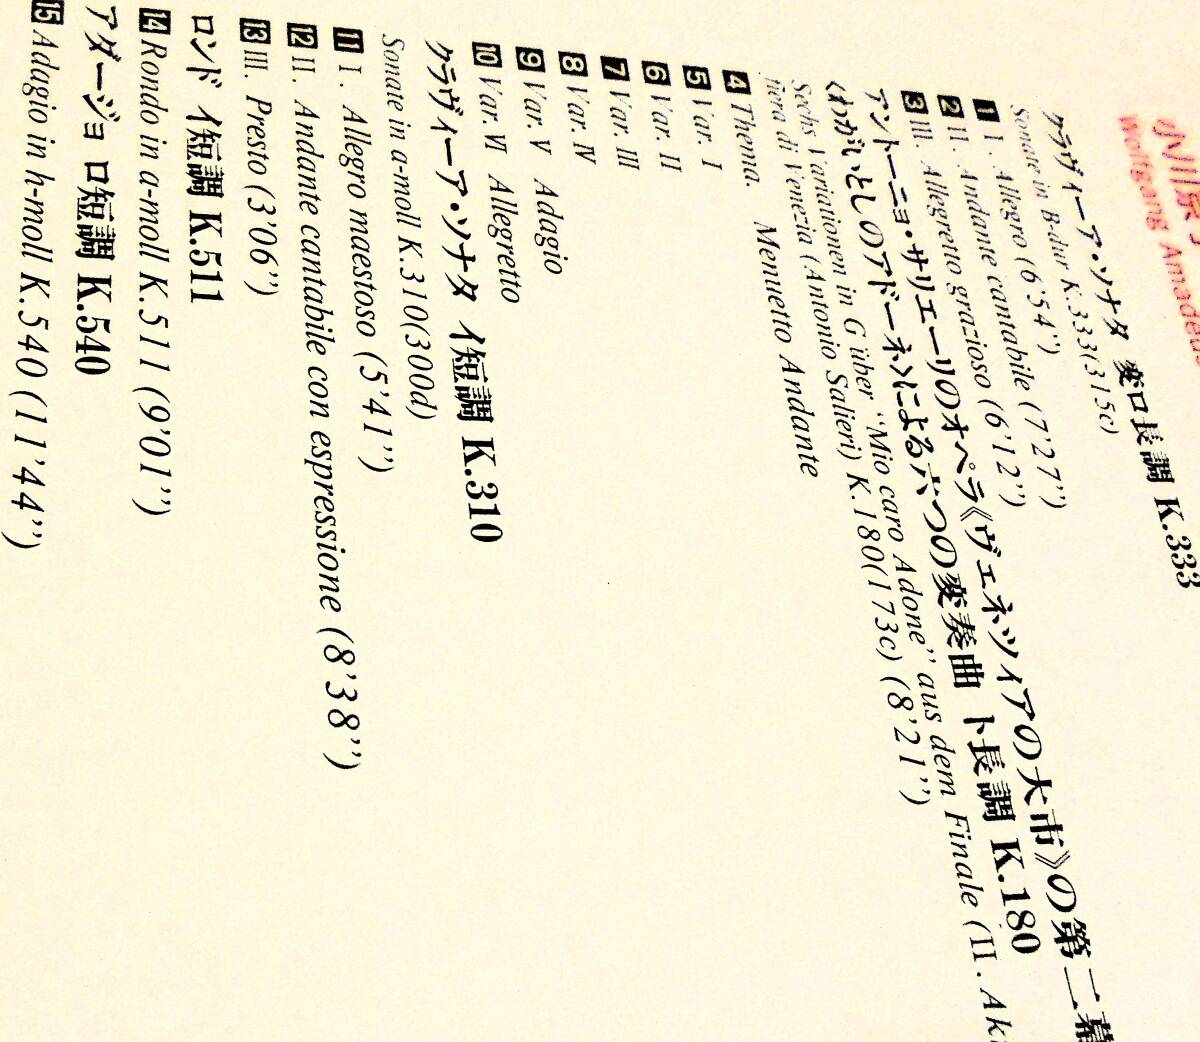 小川京子
Wolfgang Amadeus
クラヴィーア・ソナタ 変ロ長調 K.333
Sonate in B-dur K.333(315c)
1 I. Allegro (6’54”)
2 II. Andante cantabile (7’27”)
3 III. Allegretto grazioso (6’12”)
アントーニョ・サリエーリのオペラ《ヴェネツィアの大市》の第二幕
〈わがいとしのアドーネ〉による六つの変奏曲 ト長調 K.180
Sechs Variationen in G über “Mio caro Adone” aus dem Finale (II. Ak
fiera di Venezia (Antonio Salieri) K.180(173c) (8’21”)
4 Thema. Menuetto Andante
5 Var. I
6 Var. II
7 Var. III
8 Var. IV
9 Var. V Adagio
10 Var. VI Allegretto
クラヴィーア・ソナタ イ短調 K.310
Sonate in a-moll K.310(300d)
11 I. Allegro maestoso (5’41”)
12 II. Andante cantabile con espressione (8’38”)
13 III. Presto (3’06”)
ロンド イ短調 K.511
14 Rondo in a-moll K.511 (9’01”)
アダージョ ロ短調 K.540
15 Adagio in h-moll K.540 (11’44”)